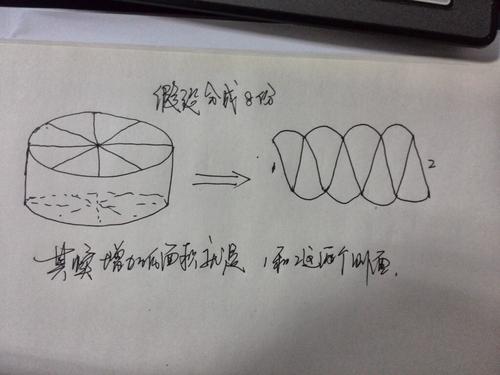 假设分成8份
1
2
其实增加的面积就是1和2这两个侧面.